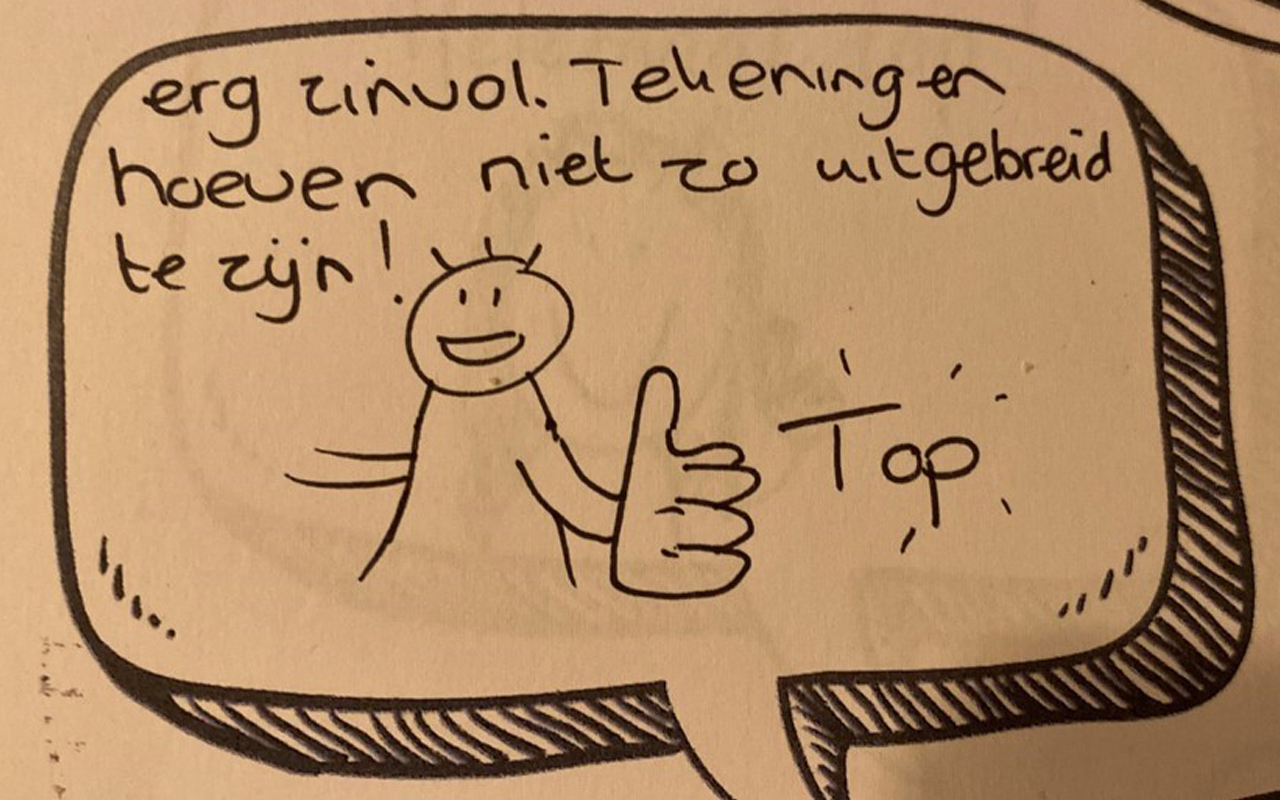 erg zinvol. Tekeningen
hoeven niet zo uitgebreid
te zijn!
Top